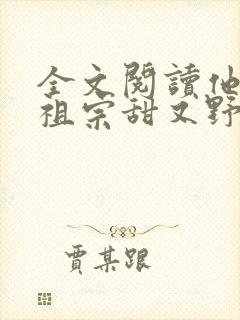 全文閱讀他
祖宗甜又野
賈某跟